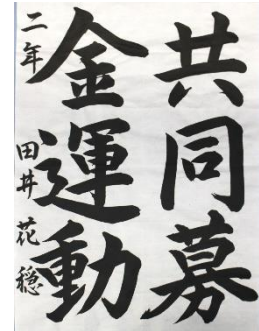 共同募
金運動
二年 田井花穏